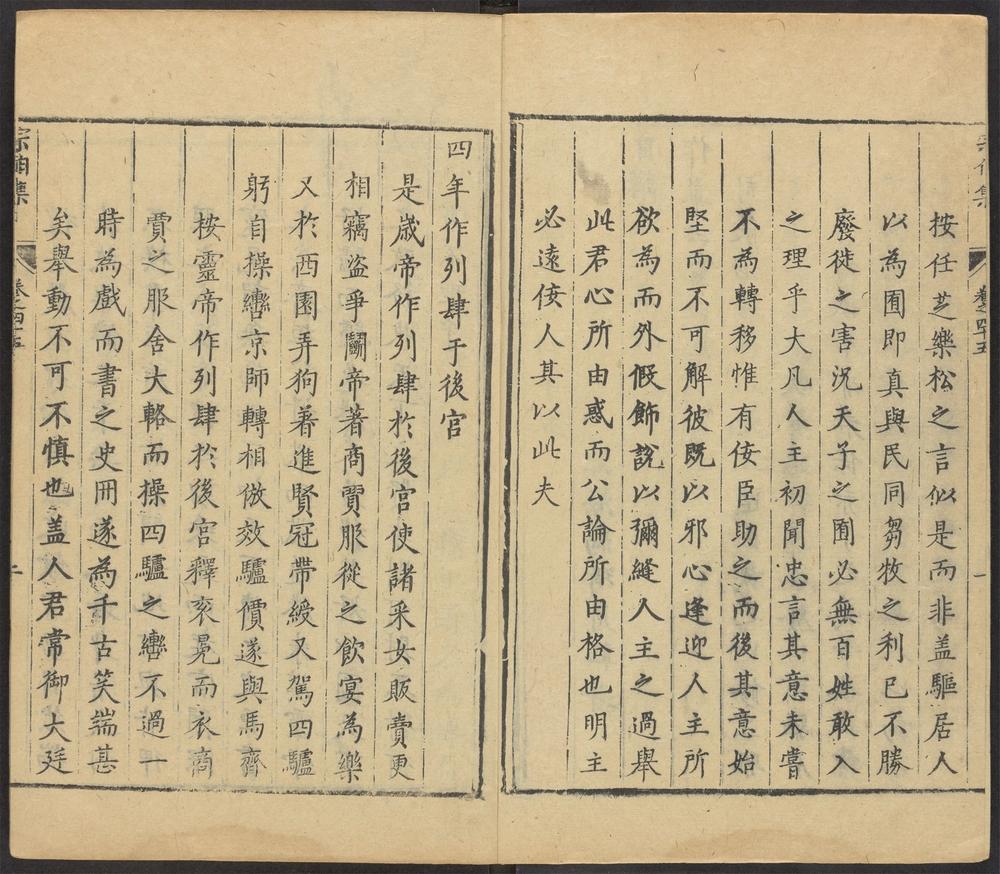 按任芝樂松之言似是而非盖驅居人
以為囿即真與民同芻牧之利已不勝
廢徙之害況天子之囿必無百姓敢入
之理乎大凡人主初聞忠言其意未嘗
不為轉移惟有佞臣助之而後其意始
堅而不可解彼既以邪心逢迎人主所
欲為而外假飾說以彌縫人主之過舉
此君心所由惑而公論所由格也明主
必遠佞人其以此夫
四年作列肆于後宫
是歲帝作列肆於後宫使諸采女販賣更
相竊盗爭鬬帝著商賈服從之飲宴為樂
又於西園弄狗著進賢冠帶綬又駕四驢
躬自操轡京師轉相倣效驢價遂與馬齊
按靈帝作列肆於後宫釋衮冕而衣商
賈之服舍大輅而操四驢之轡不過一
時為戲而書之史冊遂為千古笑端甚
矣舉動不可不慎也盖人君常御大廷
卷之四十五